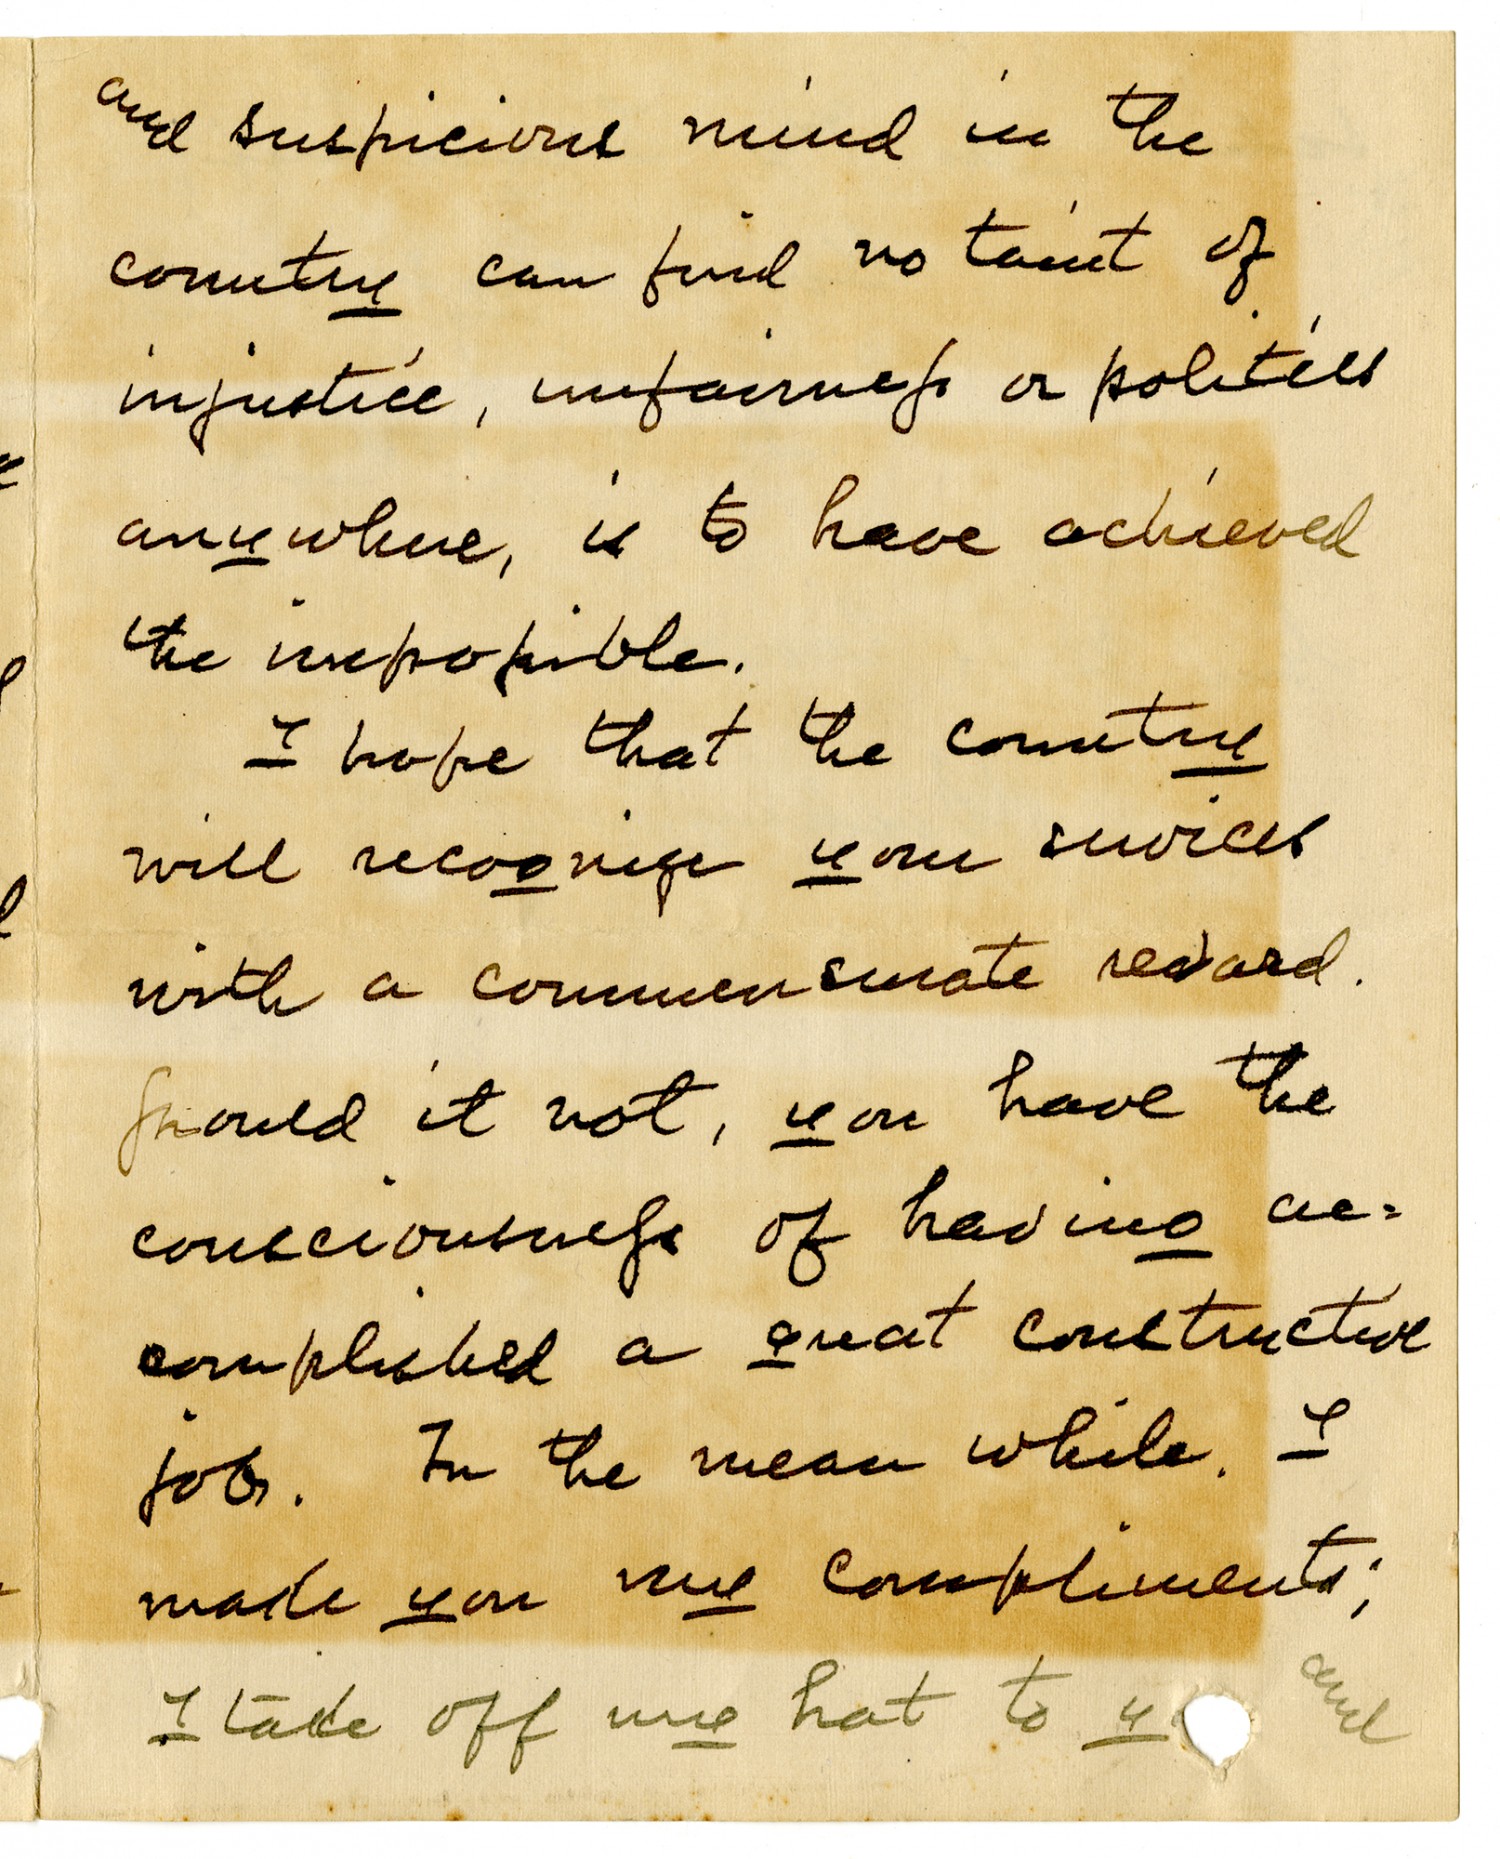 and suspicious mind in the
country can find no taint of
injustice, unfairness or politics
anywhere, is to have achieved
the impossible.
I hope that the country
will recognize your services
with a commensurate reward.
Should it not, you have the
consciousness of having ac=
complished a great constructive
job. In the mean while, I
made you my compliments;
I take off my hat to y
and